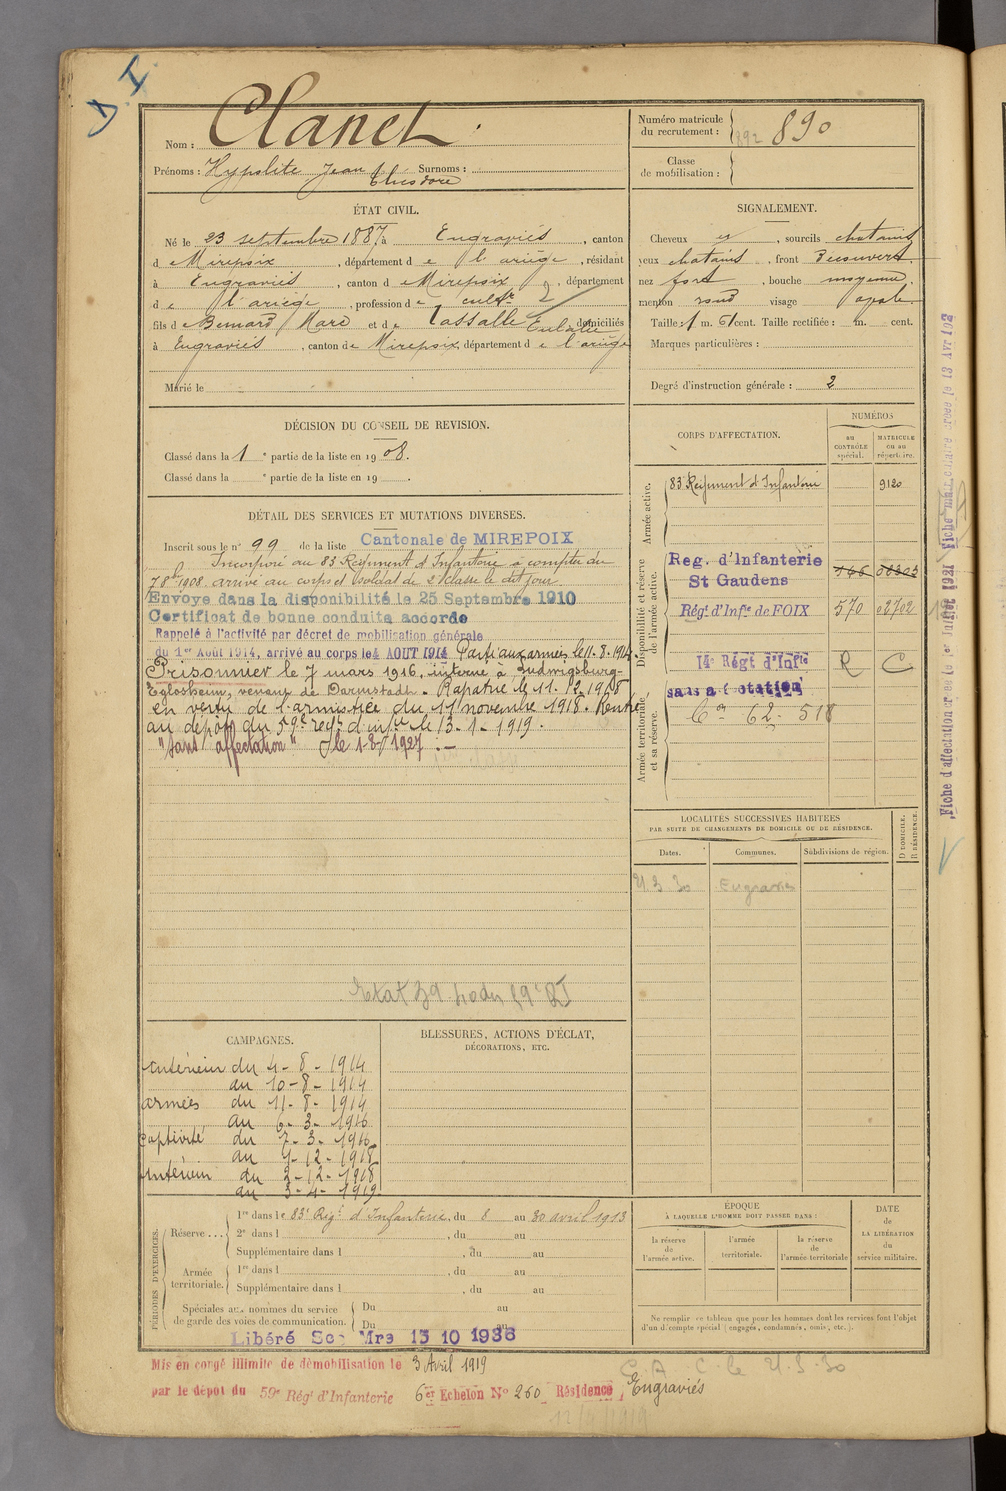 Nom : Clanet
Prénoms : Hypolite Jean Surnoms :
Théodore
Numéro matricule
du recrutement : 890
Classe
de mobilisation :
ÉTAT CIVIL.
Né le 23 septembre 1887 à Engraviés, canton
de Mirepoix, département de l'ariège, résidant
à Engraviés, canton de Mirepoix, département
de l'ariège, profession de cultr
fils de Bernard Marc et de Lassalle Eulalie domiciliés
à Engraviés, canton de Mirepoix, département de l'ariège
Marié le
SIGNALEMENT.
Cheveux et, sourcils chatains
yeux chatains, front Découvert
nez fort, bouche moyenne
menton rond visage ovale
Taille : 1 m. 61 cent. Taille rectifiée : m. cent.
Marques particulières :
Degré d'instruction générale : 2
DÉCISION DU CONSEIL DE REVISION.
Classé dans la 1e partie de la liste en 1908.
Classé dans la e partie de la liste en 19 .
DÉTAIL DES SERVICES ET MUTATIONS DIVERSES.
Inscrit sous le n° 99 de la liste Cantonale de MIREPOIX
Incorporé au 83 Régiment d'Infanterie à compter du
7 8bre 1908. arrivé au corps et soldat de 2e classe le dit jour
Envoyé dans la disponibilité le 25 Septembre 1910
Certificat de bonne conduite accordé
Rappelé à l'activité par décret de mobilisation générale
du 1er Août 1914, arrivé au corps le 4 AOUT 1914 Parti aux armées le 11.8.1914
Prisonnier le 7 mars 1916, interné à Ludwigsburg-
Eglosheim, venant de Darmstadt. Rapatrié le 11.12.1918
en vertu de l'armistice du 11 novembre 1918. Rentré
au dépôt du 59e regt d'infie le 13-1-1919.
"Sans affectation" le 1-8-1927
CORPS D'AFFECTATION.
NUMÉROS
au
CONTRÔLE
spécial.
MATRICULE
ou au
répertoire.
Armée active.
83e Régiment d'Infanterie 9120
Disponibilité et réserve
de l'armée active.
Reg. d'Infanterie
St Gaudens
Régt d'Infie de FOIX 570 02702
14e Régt d'Infie R C
sans affectation
Armée territoriale
et sa réserve.
Con 62. 518
LOCALITÉS SUCCESSIVES HABITÉES
PAR SUITE DE CHANGEMENTS DE DOMICILE OU DE RÉSIDENCE.
Dates. Communes. Subdivisions de région.
D DOMICILE.
R RÉSIDENCE.
21.3.30 Engraviés
CAMPAGNES.
Intérieur du 4-8-1914
au 10-8-1914
armées du 11-8-1914
au 6-3-1916
Captivité du 7-3-1916
au 1-12-1918
Intérieur du 2-12-1918
au 3-4-1919
BLESSURES, ACTIONS D'ÉCLAT,
DÉCORATIONS, ETC.
PÉRIODES D'EXERCICES.
Réserve ... 1re dans le 83e Régt d'Infanterie, du 8 au 30 avril 1913
2e dans l , du au
Supplémentaire dans l , du au
Armée
territoriale. 1re dans l , du au
Supplémentaire dans l , du au
Spéciales aux hommes du service
de garde des voies de communication. Du au
Du au
ÉPOQUE
À LAQUELLE L'HOMME DOIT PASSER DANS :
la réserve
de
l'armée active.
l'armée
territoriale.
la réserve
de
l'armée territoriale
DATE
de
LA LIBÉRATION
du
service militaire.
Ne remplir ce tableau que pour les hommes dont les services font l'objet
d'un décompte spécial (engagés, condamnés, omis, etc.).
Libéré Sce Mre 15 10 1936
Mis en congé illimité de démobilisation le 3 Avril 1919
par le dépôt du 59e Régt d'Infanterie 6e Echelon N° 260 Résidence Engraviés